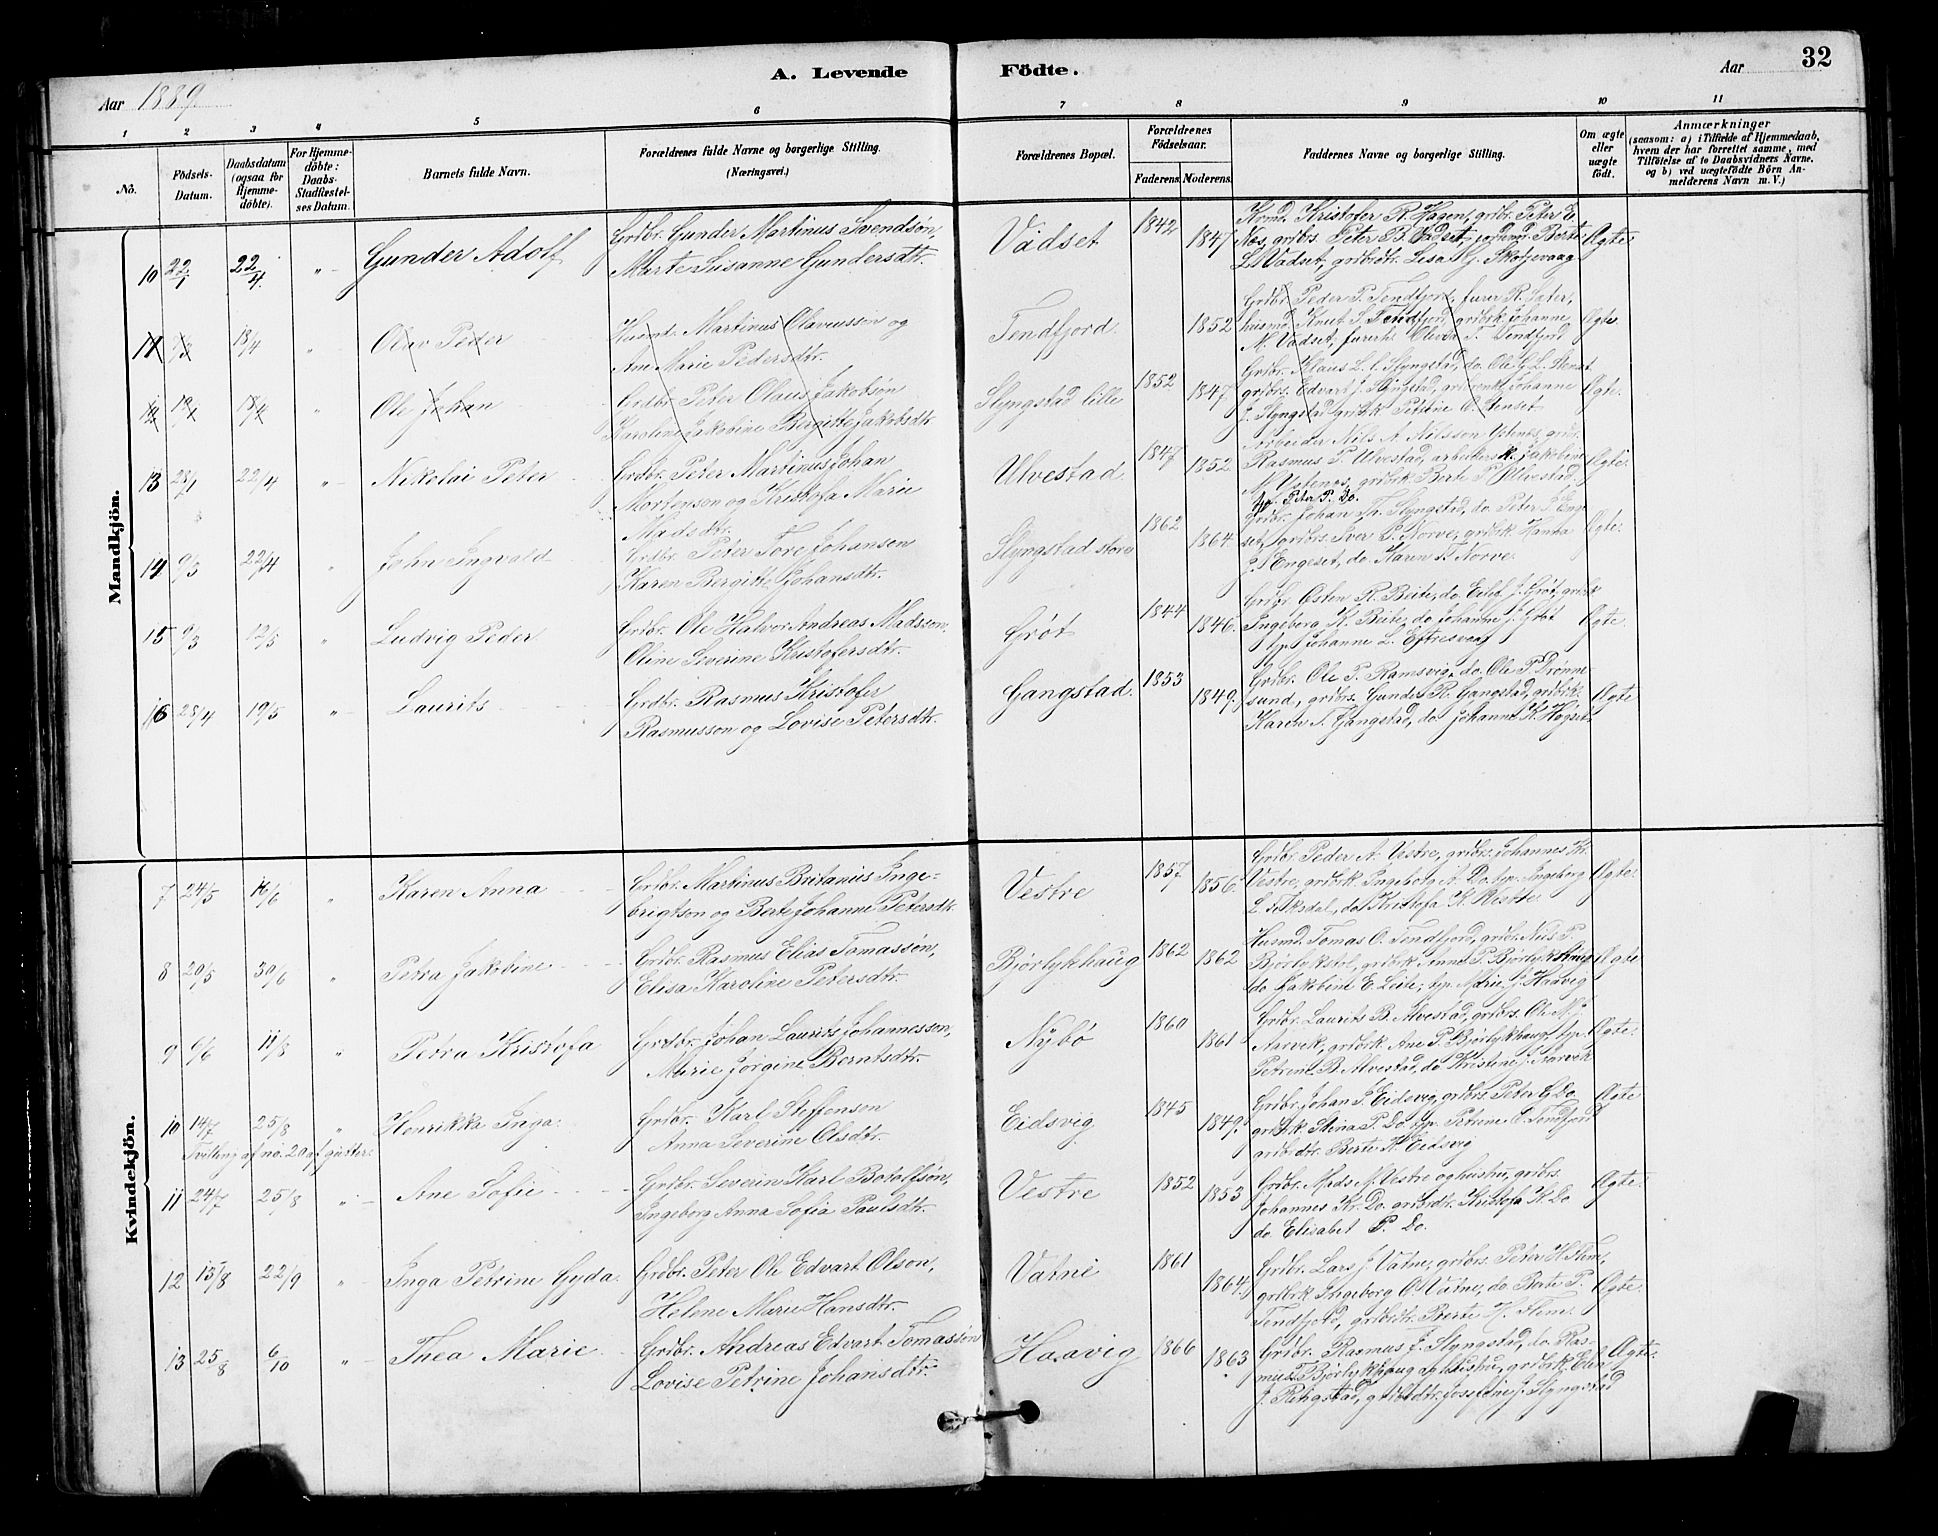 A. Levende Födte.
Aar 1889.
Aar 32
1 2 3 4 5 6 7 8 9 10 11
No.
Födsels-Datum.
Daabsdatum (ogsaa for Hjemmedöbte).
For Hjemmedöbte: Daabs-Stadfæstelses Datum.
Barnets fulde Navn.
Forældrenes fulde Navne og borgerlige Stilling. (Næringsvei.)
Forældrenes Bopæl.
Forældrenes Födselsaar.
Faderens. Moderens.
Faddernes Navne og borgerlige Stilling.
Om ægte eller uægte födt.
Anmærkninger
(saasom: a) i Tilfælde af Hjemmedaab, hvem der har forrettet samme, med Tilföielse af to Daabsvidners Navne. og b) ved uægtefödte Börn Anmelderens Navn m. V.)
Mandkjön.
10 22/1 22/4 " Gunder Adolf
Grdbr. Gunder Martinus Svendsøn,
Marte Susanne Gundersdtr.
Vadset 1842 1847
Krmd. Kristofer R. Hagen, grdbr. Peter E.
Næs, grdbrs. Peter B. Vadset, Berte
L. Vadset, grdbrdtr. Lisa Skotjevaag
Ægte
11 18/4 " Olav Peder
Husmd. Martinus Olavusson og
Ane Marie Pedersdtr.
Tendfjord. 1852
Grdbr. Peder P. Tendfjord, furer R. Sater,
husmd. Knut S. Tendfjord, grdbrk. Johanne
M. Vadset, Tendfjord
Ægte
12 18/4 " Ole Johan
Grdbr. Peter Olaus Jakobsøn
Karoline Jakobine Bergitte Jakobsdtr
Slyngstad lille 1852 1847
Grdbr. Klaus L. l. Slyngstad, do. Ole G. L. Stenset
grdbrs. Edvart J. Slyngstad, Johanne
J. Slyngstad grdbrk Petrine O. Stenset
Ægte.
13 28/1 22/4 " Nikolai Peter
Grdbr. Peter Martinus Johan
Mortenson og Kristofa Marie
Madsdtr.
Ulvestad 1847 1852
Arbeider Nils A. Nilsson Ystenes, grdbr.
Rasmus P. Ulvestad, arbeiderk. Jakobine
M. Ystenes, grdbrk Berte P. Ulvestad.
Peter P. Do.
Ægte.
14 9/3 22/4 " John Ingvald
Grdbr. Peter Tore Johansen
Karen Bergitte Johansdtr.
Slyngstad store 1862 1864
Grdbr. Johan Th. Slyngstad, do. Peter P. Enge-
set, grdbrs. Iver P. Norve, grdbrk. Hanna
J. Engeset, do. Karen T. Norve.
Ægte.
15 9/3 12/5 " Ludvig Peder
Grdbr. Ole Halvor Andreas Madsson,
Oline Severine Kristofersdtr.
Grøt 1844 1846.
Grdbr. Osten R. Beite, do. Eilef J. Grøt, grdbrk
Ingeborg K. Beite, do. Johanne J. Grøt
tp. Johanne L. Eftresvaag
Ægte.
16 28/4 19/5 " Laurits
Grdbr. Rasmus Kristofer
Rasmusson og Lovise Petersdtr.
Gangstad. 1853 1849.
Grdbr. Ole P. Ramsvig, do. Ole P. Drønne-
sund, grdbrs. Gunder R. Gangstad, grdbrk.
Karen T. Gangstad, do Johanne K. Høgset
Ægte
Kvindekjön.
7 24/5 16/6 " Karen Anna
Grdbr. Martinus Britanius Inge-
brigtson og Berte Johanne Petersdtr.
Vestre 1857 1856.
Grdbr. Peder A. Vestre, grdbrs. Johannes Kr.
Vestre, grdbrk Ingeborg A. Do. tp. Ingeborg
L. do Kristofa K. Vestre.
Ægte.
8 20/5 30/6 " Petra Jakobine
Grdbr. Rasmus Elias Tomassøn,
Elisa Karoline Petersdtr.
Bjørlykhaug 1862 1862
Husmd. Tomas O. Tendfjord, grdbr. Nils P.
Bjørlykstøl, grdbrk Anne P. Bjørlykhaug
do Jakobine E. Leite, tp. Marie J. Haavig
Ægte
9 9/6 11/8 " Petra Kristofa
Grdbr. Johan Laurits Johannesson,
Marie Jørgine Berntsdtr.
Nybø 1860 1861
Grdbr. Laurits B. Alvestad, grdbrs. Ole M. J.
Aarvik, grdbrk Ane P. Bjørlykhaug, tp.
Petrene B. Alvestad, do Kristine J. Aarvik
Ægte.
10 14/7 25/8 " Henrikka Inga.
Tvilling af no. 20 af gutter.
Grdbr. Karl Steffenson
Anna Severine Olsdtr.
Eidsvig 1845 1849
Grdbr. Johan P. Eidsvig, grdbrs. Peter G. Do
grdbrk Stina P. Do tp. Petrene E. Tendfjord
grdbrdtr. Berte K. Eidsvig
Ægte
11 24/7 25/8 " Ane Sofie
Grdbr. Severin Karl Botolfsøn,
Ingeborg Anna Sofia Paulsdtr.
Vestre 1852 1853
Grdbr. Mads M. Vestre og hustru, grdbrs.
Johannes Kr. Do. grdbrdtr. Kristofa K. Do
do. Elisabet P. Do.
Ægte.
12 15/8 22/9 " Inga Petrine Gyda.
Grdbr. Peter Ole Edvart Olson,
Helene Marie Hansdtr.
Vatne 1861 1864.
Grdbr. Lars J. Vatne, grdbrs. Peter H. Flem,
grdbrk Ingeborg O. Vatne, do. Berte P.
Tendfjord, grdbrdtr. Berte H. Flem.
Ægte.
13 25/8 6/10 " Thea Marie
Grdbr. Andreas Edvart Tomassøn
Lovise Petrine Johansdtr.
Haavig 1866 1863
Grdbr. Rasmus J. Slyngstad, do. Ras-
mus T. Bjørlykhaug og hustru, grdbrk. Elen
J. Ringstad, grdbrdtr. Josefine J. Slyngstad
Ægte.